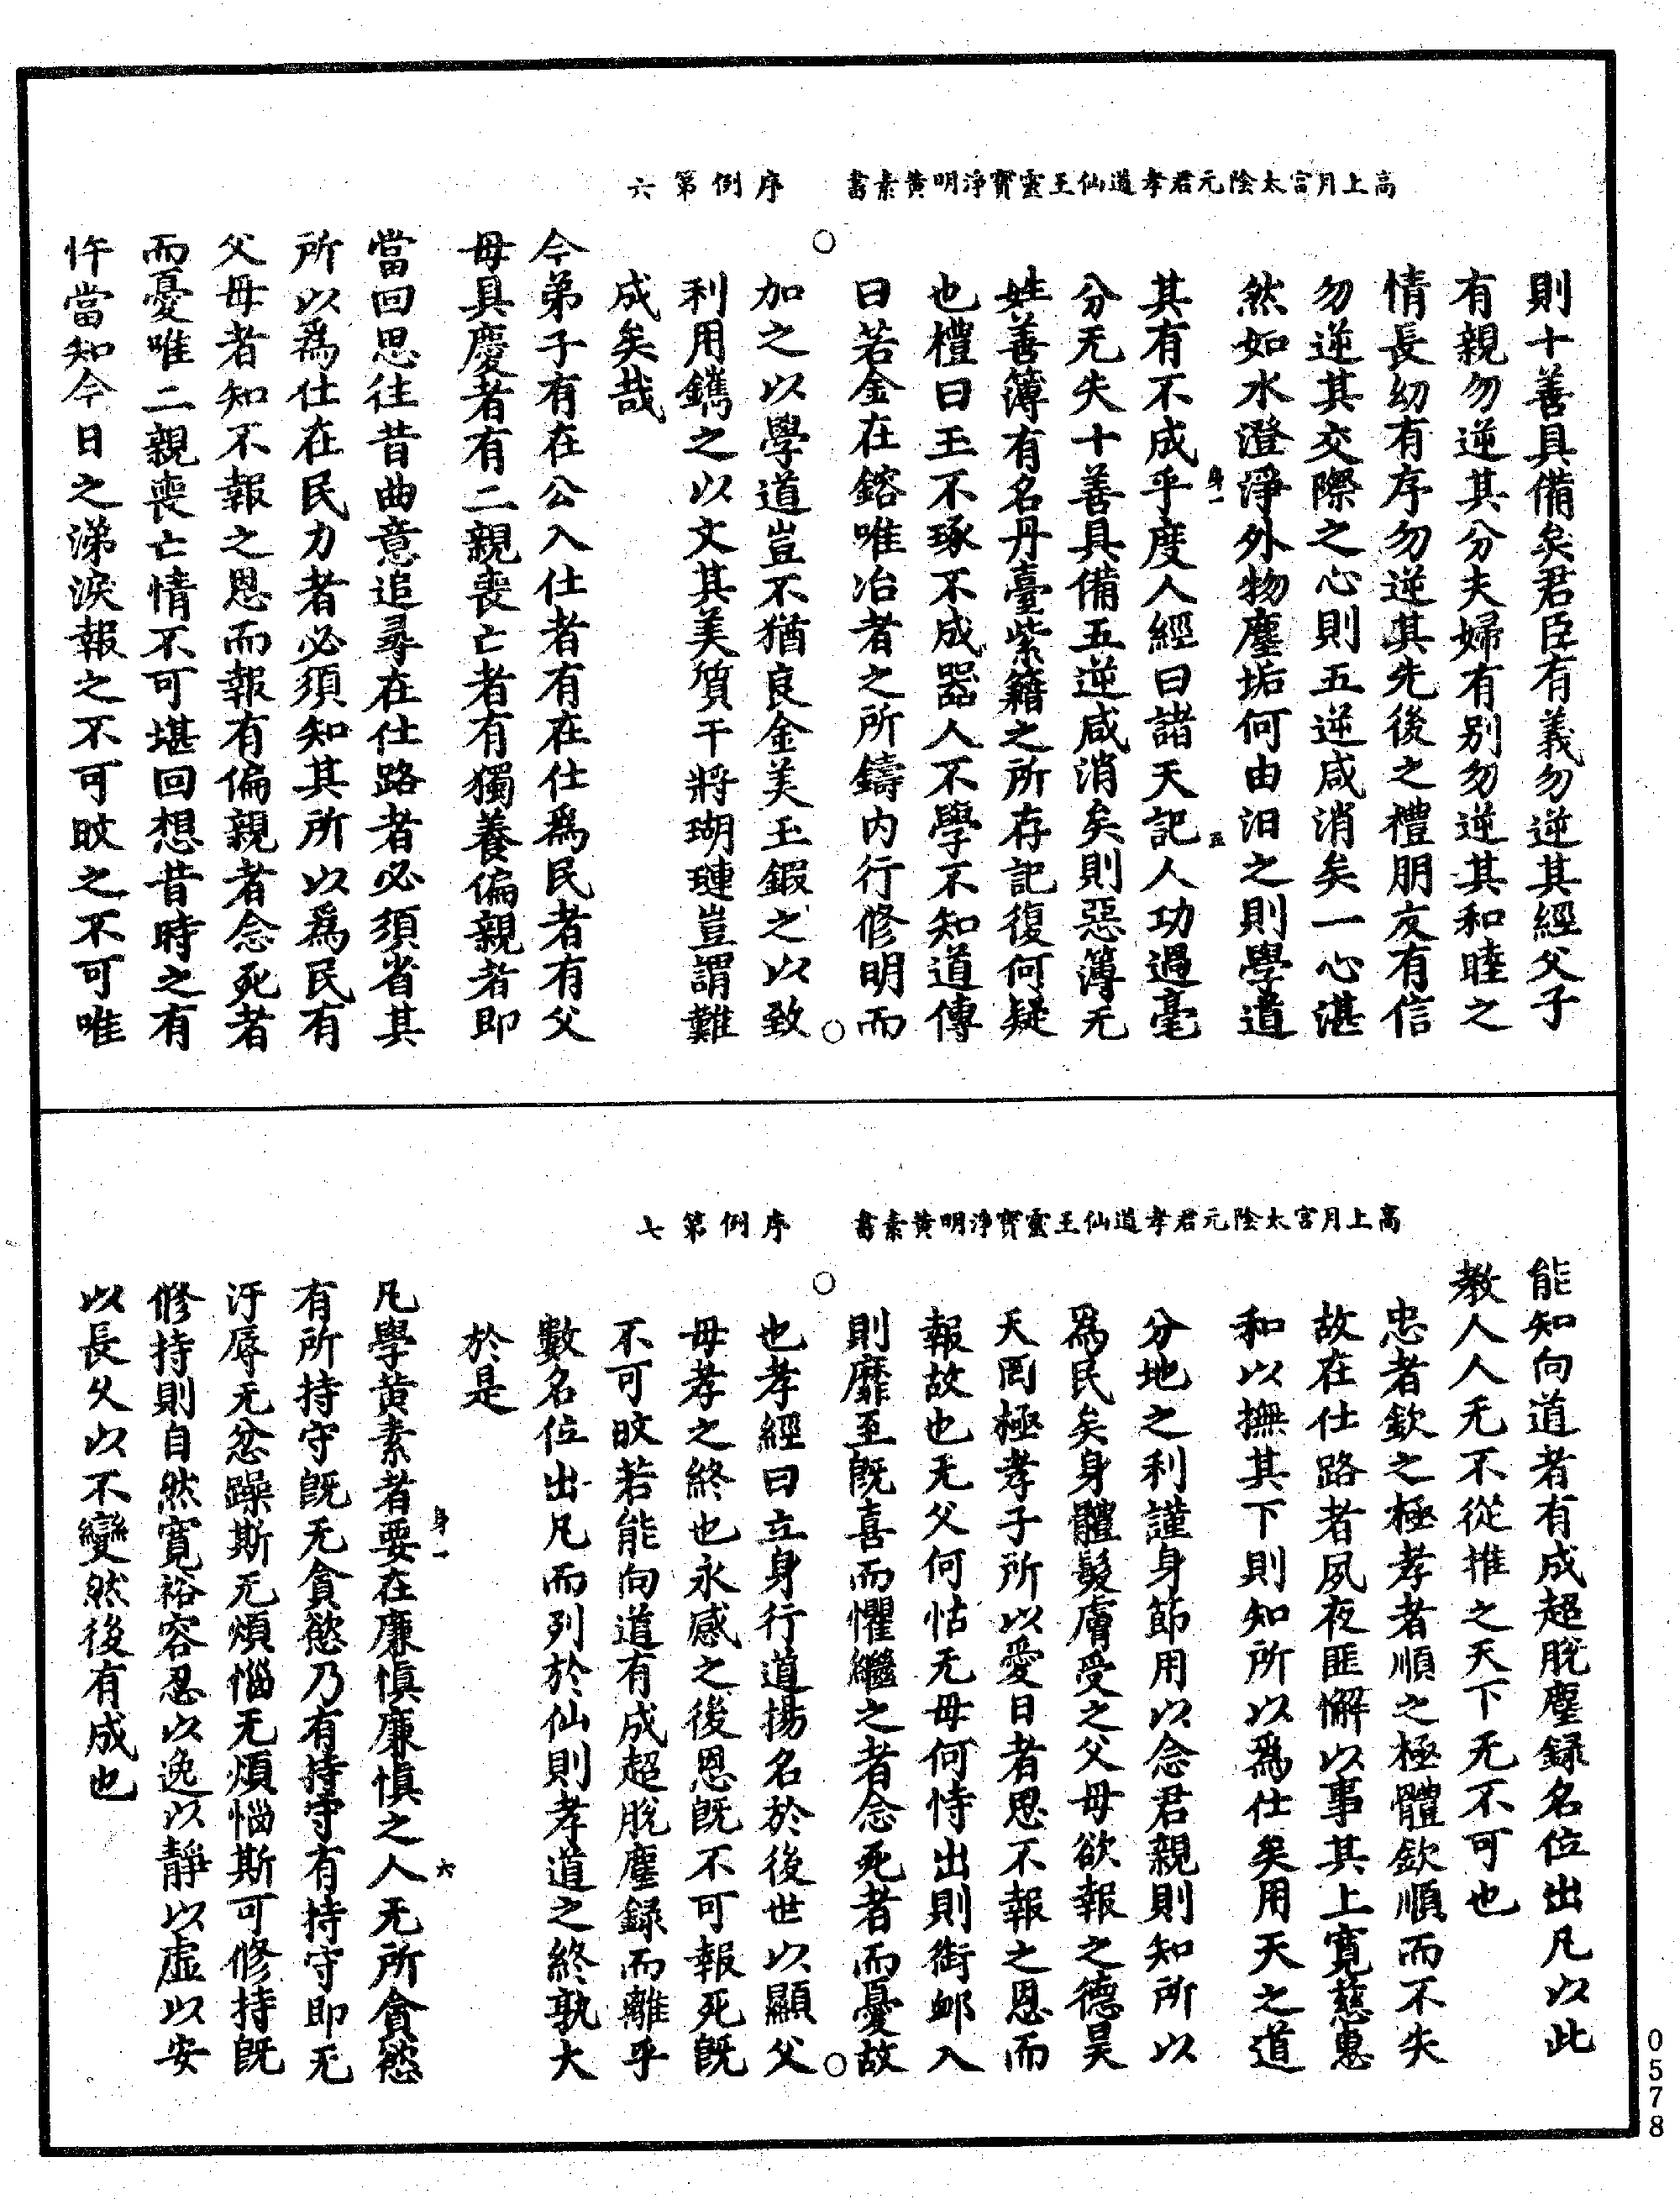 高上月宮太陰元君孝道仙王靈寶淨明黃素書　序例第六
則十善具備矣君臣有義勿逆其經父子
有親勿逆其分夫婦有别勿逆其和睦之
情長幼有序勿逆其先後之禮朋友有信
勿逆其交際之心則五逆咸消矣一心湛
然如水澄淨外物塵垢何由汩之則學道
身一　五
其有不成乎度人經曰諸天記人功過毫
分无失十善具備五逆咸消矣則惡簿无
姓善簿有名丹臺紫籍之所存記復何疑
也禮曰玉不琢不成器人不學不知道傳
曰若金在鎔唯冶者之所鑄内行修明而
加之以學道豈不猶良金美玉鍛之以致
利用鐫之以文其美質干將瑚璉豈謂難
成矣哉
今弟子有在公入仕者有在仕爲民者有父
母具慶者有二親喪亡者有獨養偏親者即
當回思往昔曲意追尋在仕路者必須省其
所以爲仕在民力者必須知其所以爲民有
父母者知不報之恩而報有偏親者念死者
而憂唯二親喪亡情不可堪回想昔時之有
忤當知今日之涕淚報之不可旼之不可唯
高上月宮太陰元君孝道仙王靈寶淨明黃素書　序例第七
能知向道者有成超脫塵録名位出凡以此
教人人无不從推之天下无不可也
忠者欽之極孝者順之極體欽順而不失
故在仕路者夙夜匪懈以事其上寬慈惠
和以撫其下則知所以爲仕矣用天之道
分地之利謹身節用以念君親則知所以
爲民矣身體髮膚受之父母欲報之德昊
天罔極孝子所以愛日者思不報之恩而
報故也无父何怙无母何恃出則銜卹入
則靡至既喜而懼繼之者念死者而憂故
也孝經曰立身行道揚名於後世以顯父
母孝之終也永感之後恩既不可報死既
不可旼若能向道有成超脫塵録而離乎
數名位出凡而列於仙則孝道之終孰大
於是
身一　六
凡學黃素者要在廉慎廉慎之人无所貪慾
有所持守既无貪慾乃有持守有持守即无
汙辱无忿躁斯无煩惱无煩惱斯可修持既
修持則自然寬裕容忍以逸以靜以虛以安
以長久以不變然後有成也
0578